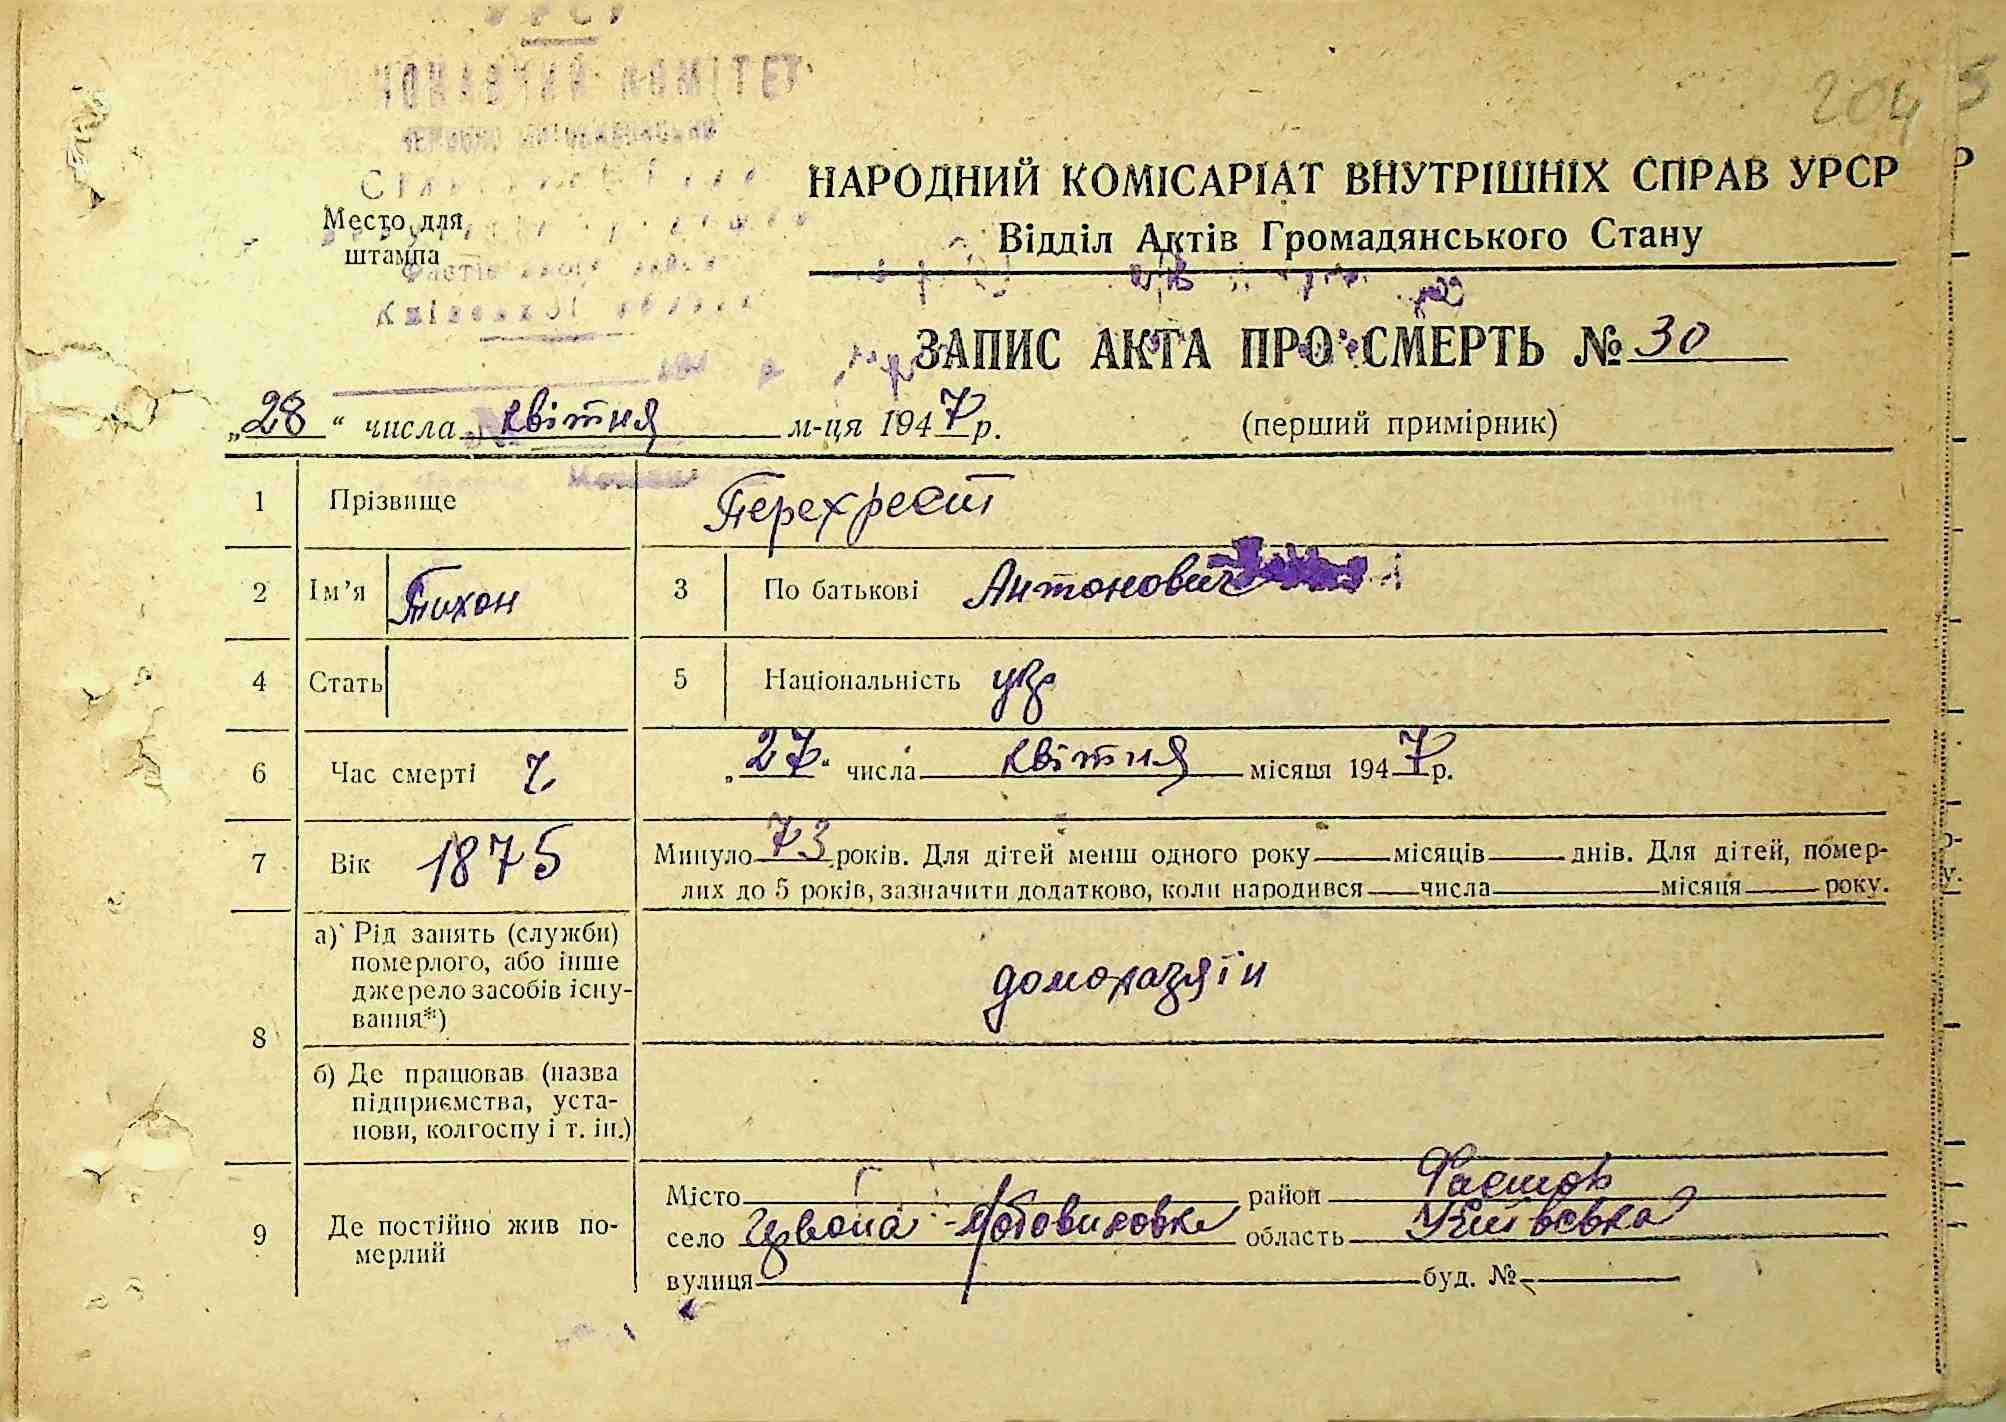 УРСР
204 5
НАРОДНИЙ КОМІСАРІАТ ВНУТРІШНІХ СПРАВ УРСР
Відділ Актів Громадянського Стану
Место для
штампа
ЗАПИС АКТА ПРО СМЕРТЬ № 30
„28“ числа квітня м-ця 1947 р.
(перший примірник)
1 Прізвище Перехрест
2 Ім'я Тихон 3 По батькові Антонович
4 Стать 5 Національність укр
6 Час смерті „27“ числа квітня місяця 1947 р.
7 Вік 1875 Минуло 73 років. Для дітей менш одного року місяців днів. Для дітей, помер-
лих до 5 років, зазначити додатково, коли народився числа місяця року.
8 а) Рід занять (служби)
померлого, або інше
джерело засобів існу-
вання*)
домохазяїн
б) Де працював (назва
підприємства, уста-
нови, колгоспу і т. ін.)
9 Де постійно жив по-
мерлий
Місто район Фастов
село область
вулиця буд. №